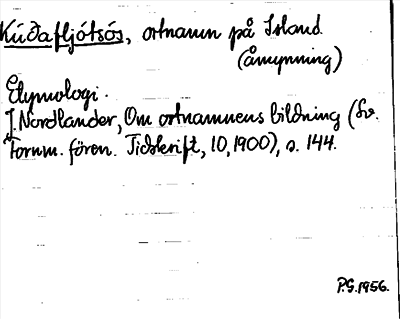 Kúðafljótsós, ortnamn på Island
(åmynning)
Etymologi.
J. Nordlander, Om ortnamnens bildning (Sv.
Fornm. fören. Tidskrift, 10, 1900), s. 144.
P.G. 1956.